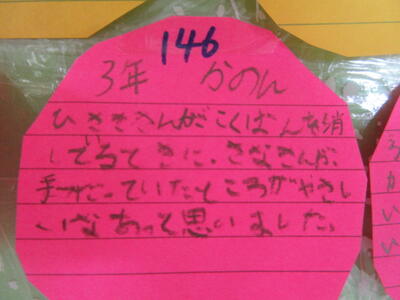 146
3年 かのん
ひさきさんがこくばんを消
しているときに、さなさんが、
手つだっていたところがやさし
いなあって思いました。